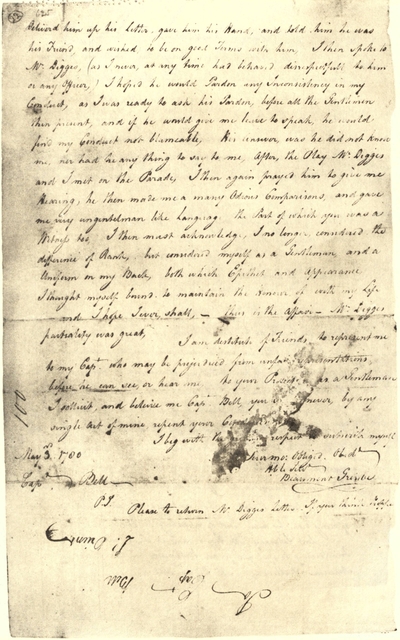 delivered him up his Letter, gave him his Hand, and told him he was
his Friend, and wished to be on good Terms with him, I then spoke to
Mr. Digges, (as I never, at any time had behaved disrespectfully to him
or any Officer,) I hoped he would Pardon any Inconsistency in my
Conduct, as I was ready to ask his Pardon, before all the Gentlemen
then present, and if he would give me leave to speak, he would
find my Conduct not blameable, His answer, was he did not know
me, nor had he any thing to say to me, After, the Play Mr. Digges
and I met on the Parade, I then again prayed him to give me
Hearing, he then made me a many Odious Comparisons, and gave
me very ungentleman like Language the Part of which you was a
Witness too, I then must acknowledge, I no longer considered the
difference of Rank, but considered myself as a Gentleman, and a
Uniform on my Back, both which Epithet and Appearance
I thought myself bound to maintain the Honour of with my Life
and I hope I ever shall, — this is the Affair — Mr. Digges
partiality was great,
I am destitute of Friends, to represent me
to my Capt. who may be prejudiced from
before he can see, or hear me to your as a Gentleman
I sollicit, and believe me Capt. Bell, you never by any
single Act of mine repent your
I beg with respect to subscribe myself
Your mo: Obliged Obedt.
Hble Servt.
May 3d. 1780
Capt. Bell
P.S.
Please to return Mr. Digges Letter
100
Capt Bell